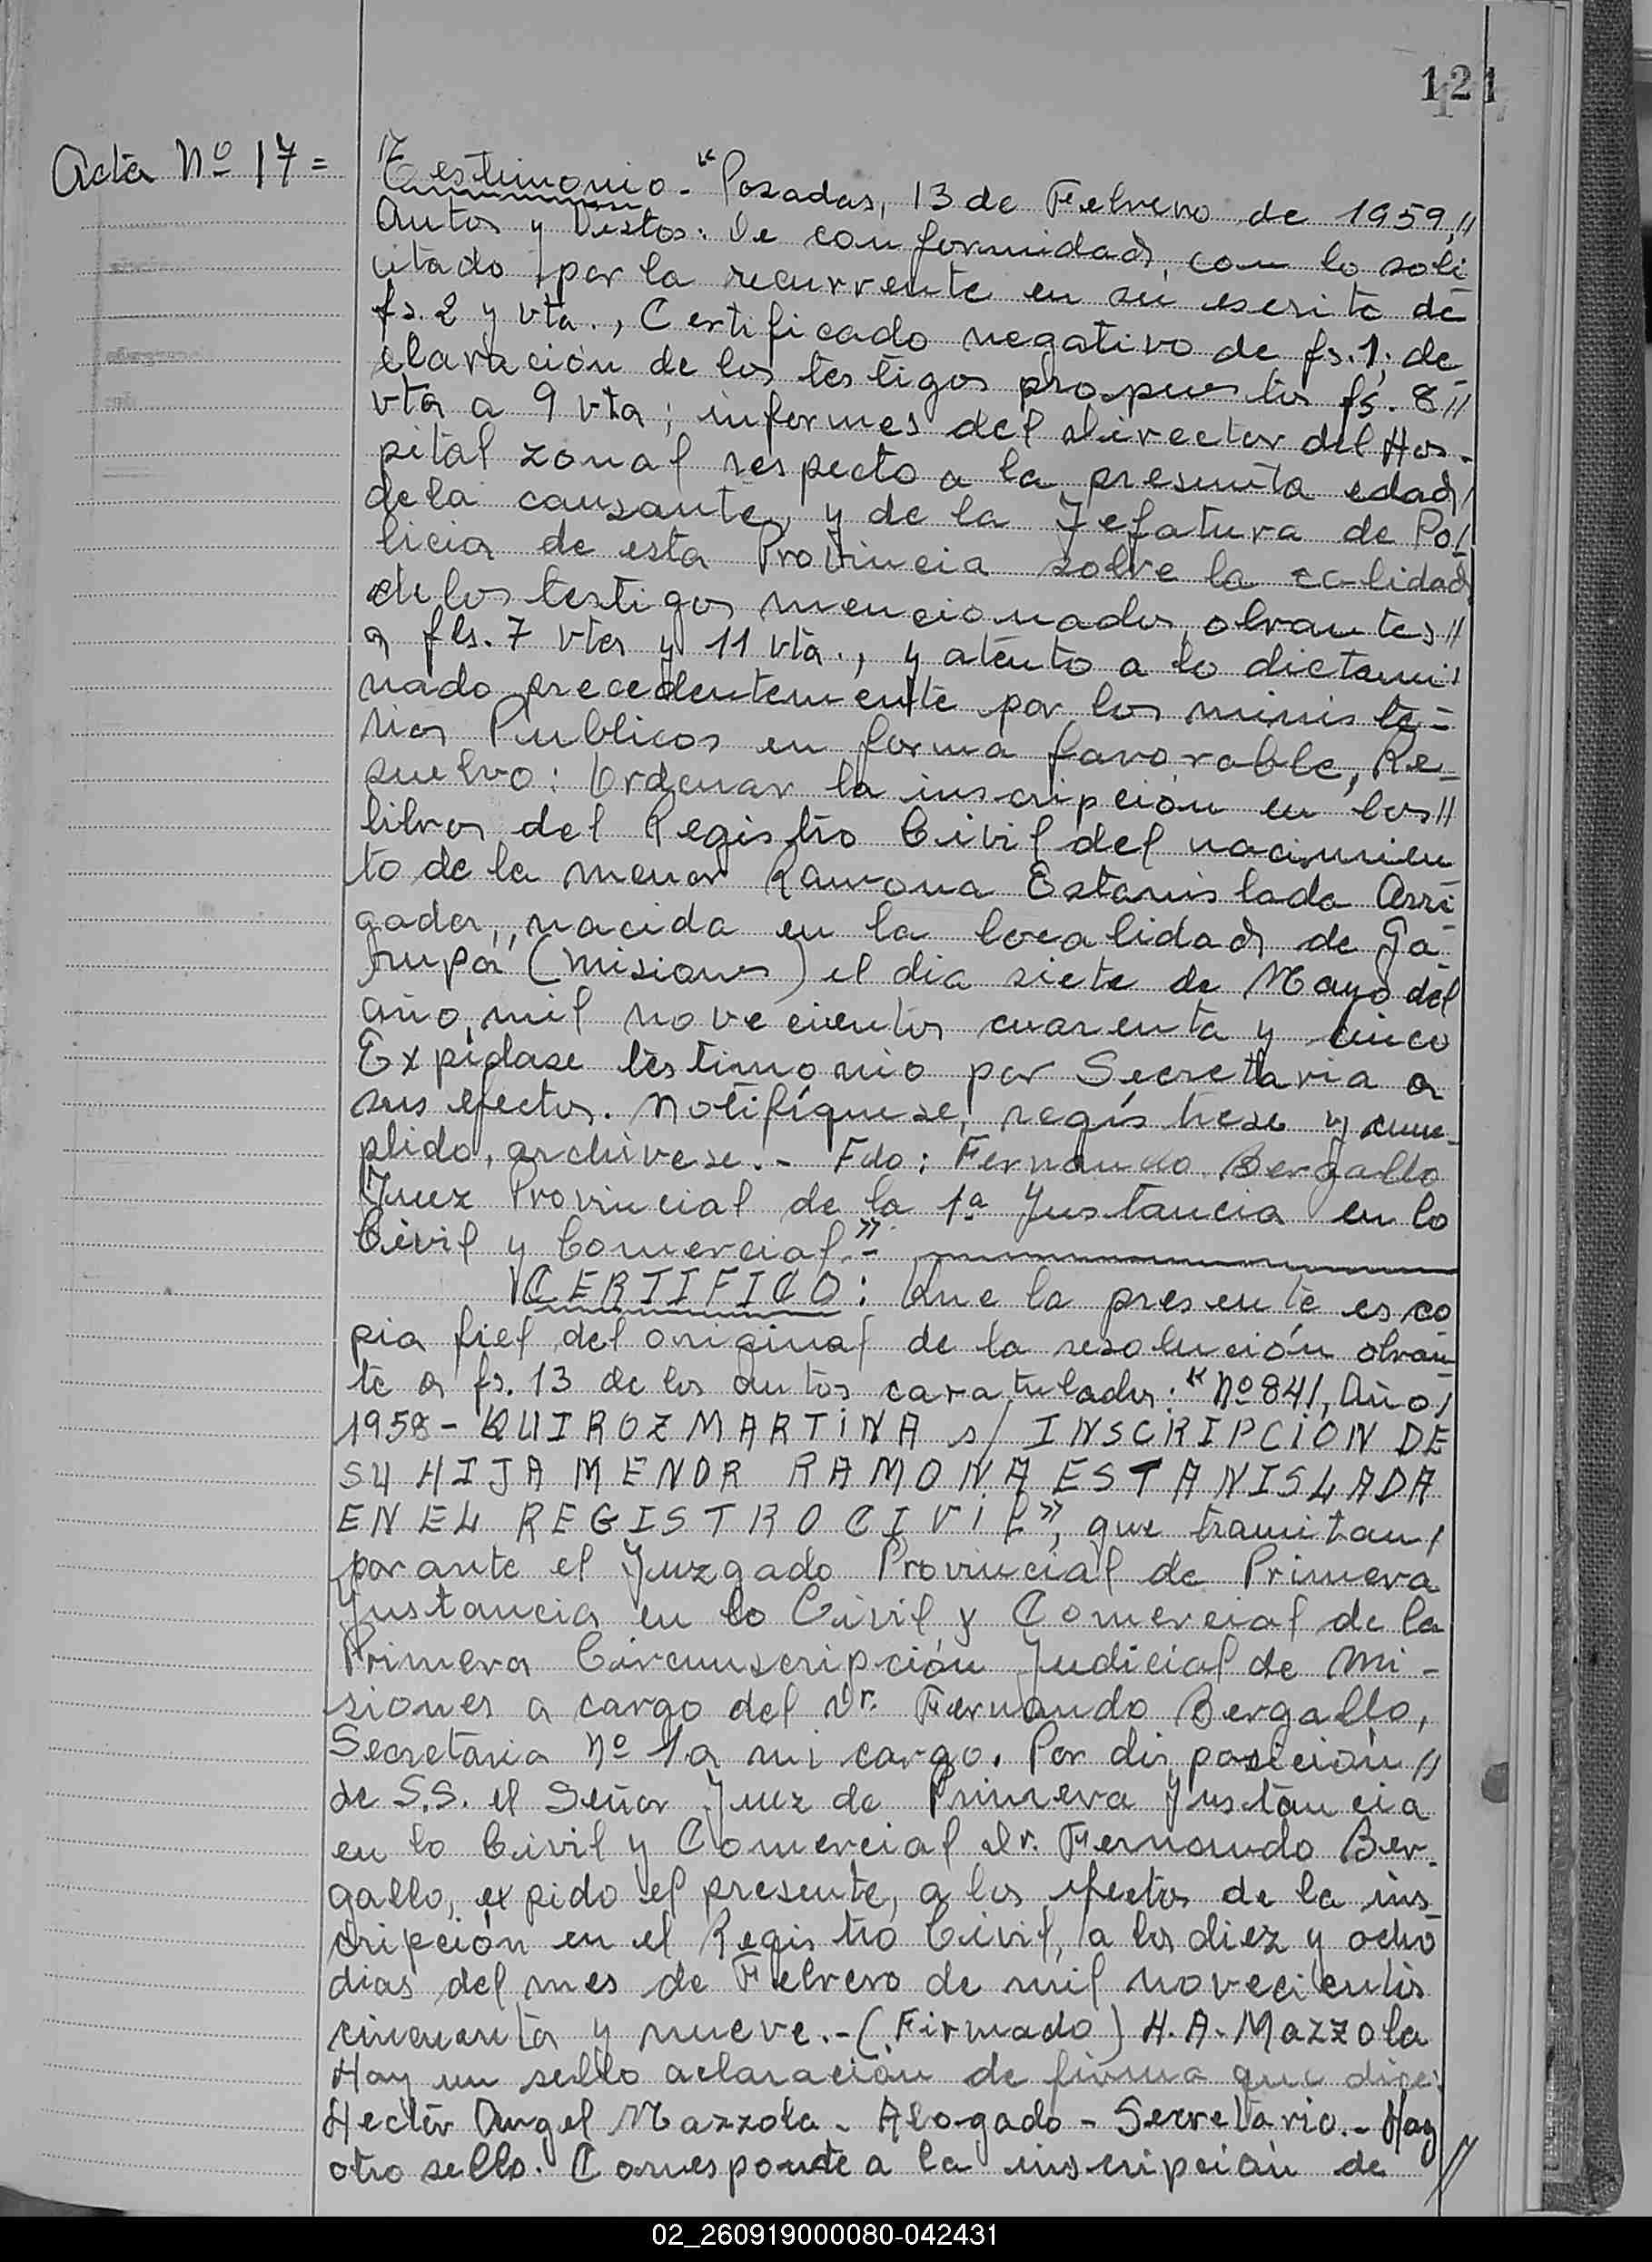 121
Acta Nº 17=
Testimonio.- "Posadas, 13 de Febrero de 1959,//
Autos y Vistos: De conformidad, con lo soli
citado por la recurrente en su escrito de
fs. 2 y vta., Certificado negativo de fs. 1; de-
claración de los testigos propuestos fs. 8//
vta a 9 vta; informes del Director del Hos-
pital zonal respecto a la presunta edad/
de la causante, y de la Jefatura de Po/
licia de esta Provincia sobre la calidad
de los testigos mencionados, obrantes//
a fls. 7 vta y 11 vta., y atento a lo dictami/
nado precedentemente por los ministe=
rios Publicos en forma favorable, Re-
suelvo: Ordenar la inscripción en los//
libros del Registro Civil del nacimien
to de la menor Ramona Estanislada Arri-
gada, nacida en la localidad de Ga-
rupá (Misiones) el dia siete de Mayo del
año mil novecientos cuarenta y cinco
Expídase testimonio por Secretaria a
sus efectos. Notifíquese, regístrese y cum-
plido, archivese.- Fdo: Fernando Bergallo
Juez Provincial de la 1ª Instancia en lo
Civil y Comercial".-
CERTIFICO: Que la presente es co
pia fiel del original de la resolución obran
te a fs. 13 de los autos caratulados: "Nº 841, Año/
1958 - QUIROZ MARTINA s/ INSCRIPCION DE
SU HIJA MENOR RAMONA ESTANISLADA
EN EL REGISTRO CIVIL", que tramitan/
por ante el Juzgado Provincial de Primera
Instancia en lo Civil y Comercial de la
Primera Circunscripción Judicial de Mi-
siones a cargo del Dr. Fernando Bergallo,
Secretaria Nº 1 a mi cargo. Por disposición//
de S.S. el Señor Juez de Primera Instancia
en lo Civil y Comercial Dr. Fernando Ber-
gallo, expido el presente, a los efectos de la ins
cripción en el Registro Civil, a los diez y ocho
dias del mes de Febrero de mil novecientos
cincuenta y nueve.- (Firmado) H. A. Mazzola
Hay un sello aclaración de firma que dice:
Hector Angel Mazzola - Abogado - Secretario.- Hay
otro sello. Corresponde a la inscripción de //
02_260919000080-042431